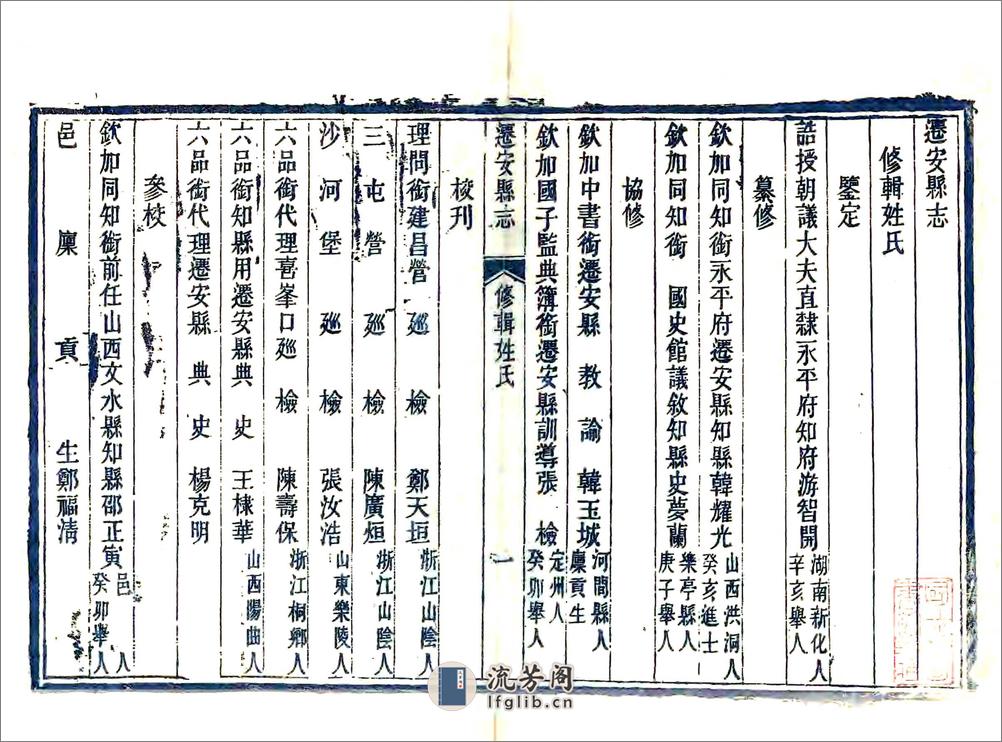 遷安縣志
修輯姓氏
鑒定
誥授朝議大夫直隸永平府知府游智開 湖南新化人 辛亥舉人
纂修
欽加同知銜永平府遷安縣知縣韓耀光 山西洪洞人 癸亥進士
欽加同知銜 國史館議敘知縣史夢蘭 樂亭縣人 庚子舉人
協修
欽加中書銜遷安縣教諭韓玉城 河間縣人 廩貢生
欽加國子監典簿銜遷安縣訓導張檢 定州人 癸卯舉人
遷安縣志 修輯姓氏 一
校刊
理問銜建昌營廵檢鄭天垣 浙江山陰人
三屯營廵檢陳廣烜 浙江山陰人
沙河堡廵檢張汝浩 山東樂陵人
六品銜代理喜峯口廵檢陳壽保 浙江桐鄉人
六品銜知縣用遷安縣典史王棣華 山西陽曲人
六品銜代理遷安縣典史楊克明
參校
欽加同知銜前任山西文水縣知縣邵正寅 邑人 癸卯舉人
邑廩貢生鄭福淸
流芳阁
lfglib.cn